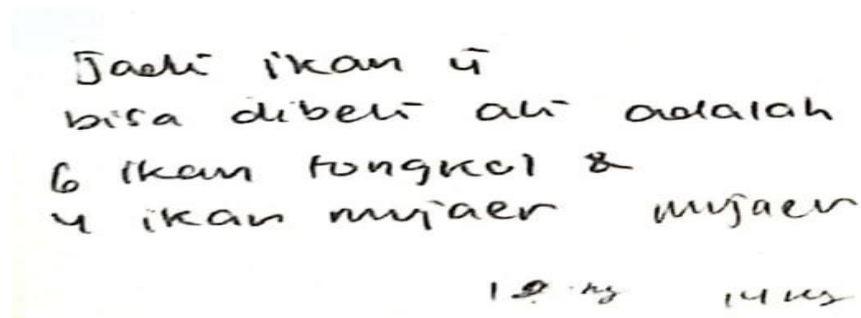 Jadi ikan yg
bisa dibeli ali adalah
6 ikan tongkol &
4 ikan mujaer mujaer
14 kg